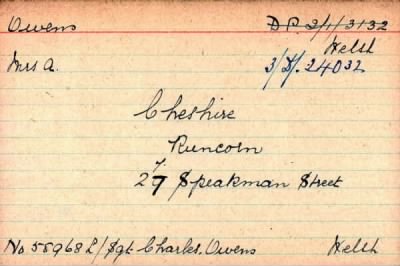 Owens D.P. 3/1/3132
Welsh
Mrs A. 3/D/. 24032
Cheshire
Runcorn
7
27 Speakman Street
No 58968 L/Sgt Charles. Owens Welsh